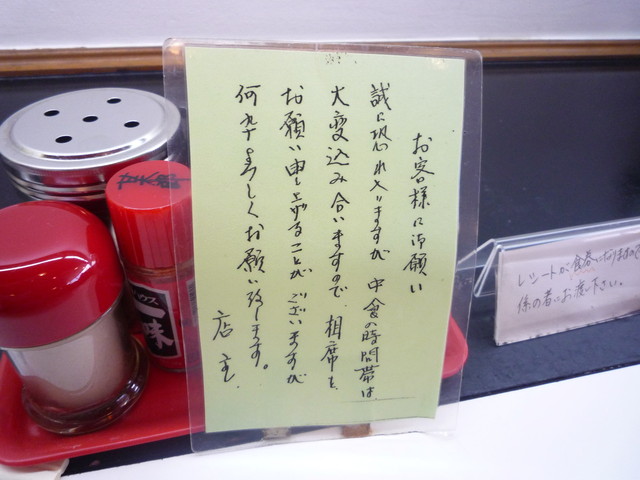 お客様にお願い
誠に恐れ入りますが 中食の時間帯は
大変込み合いますので 相席を
お願い申し上げることが ございますが
何卒よろしくお願い致します。
店主
ハウス
一味
レシートが食券になりますので
係の者にお渡し下さい。